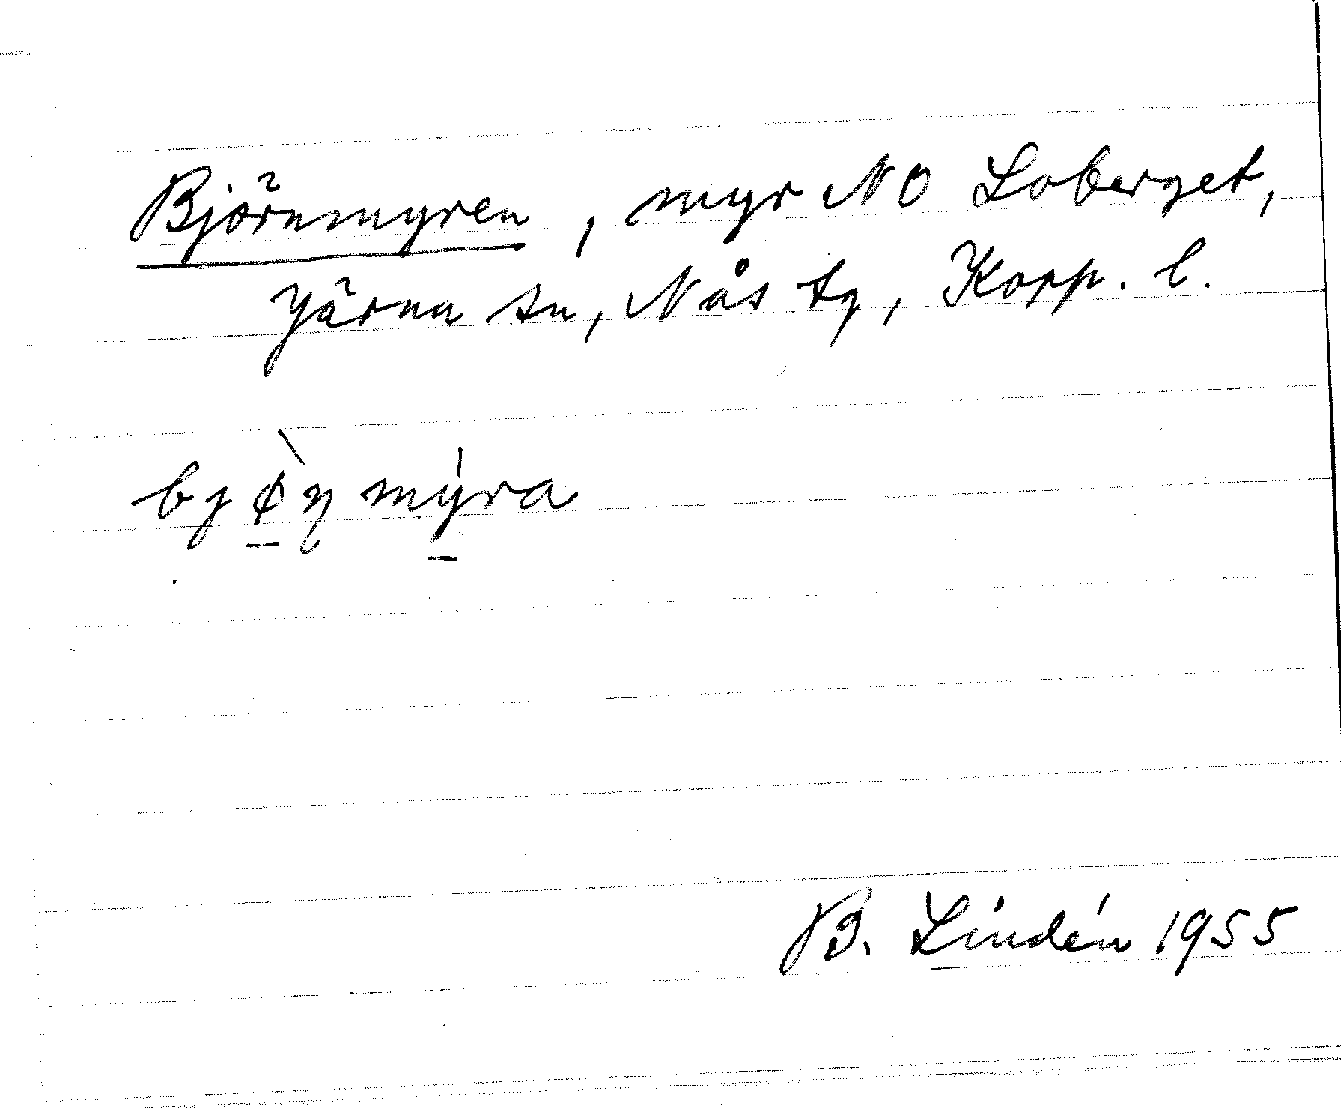 Björnmyren, myr NO Loberget,
Järna sn, Nås tg, Kopp. l.
bjø̀ɳmýra
B. Lindén 1955